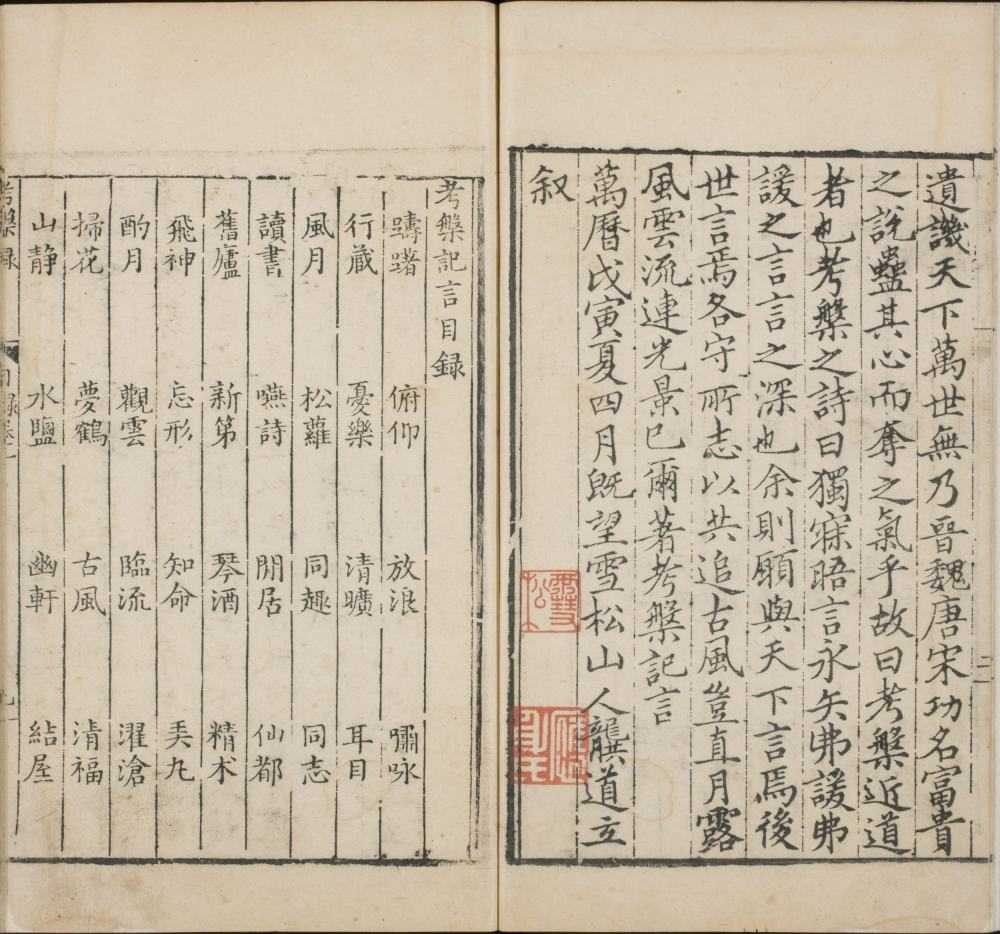 遺譏天下萬世無乃晉魏唐宋功名富貴
之說蠱其心而奪之氣乎故曰考槃近道
者也考槃之詩曰獨寐晤言永矢弗諼弗
諼之言言之深也余則願與天下言焉後
世言焉各守所志以共追古風豈直月露
風雲流連光景巳爾著考槃記言
萬曆戊寅夏四月旣望雪松山人龔道立
叙
考槃記言目録
躊躇 俯仰 放浪 嘯咏
行藏 憂樂 清曠 耳目
風月 松蘿 同趣 同志
讀書 嚥詩 閒居 仙都
舊廬 新第 琴酒 精术
飛神 忘形 知命 美九
酌月 觀雲 臨流 濯滄
掃花 夢鶴 古風 清福
山静 水鹽 幽軒 結屋
考槃録